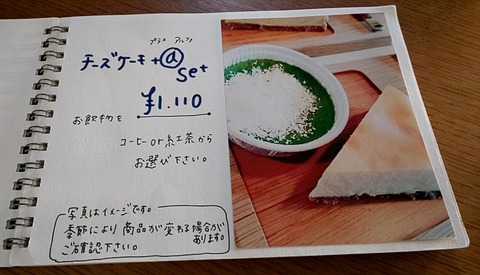 プラス アルファ
チーズケーキ+@
set
¥1.110
お飲物を
コーヒーor紅茶から
お選び下さい。
写真はイメージです。
季節により商品が変わる場合が
あります。
ご確認下さい。